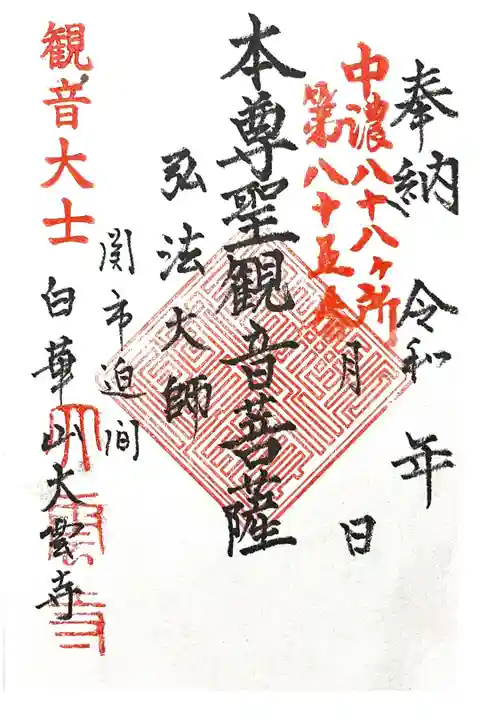 奉納 令和 年
月 日
中濃八十八ヶ所
第八十五番
本尊聖観音菩薩
弘法大師
関市迫间
観音大士
白華山大雲寺